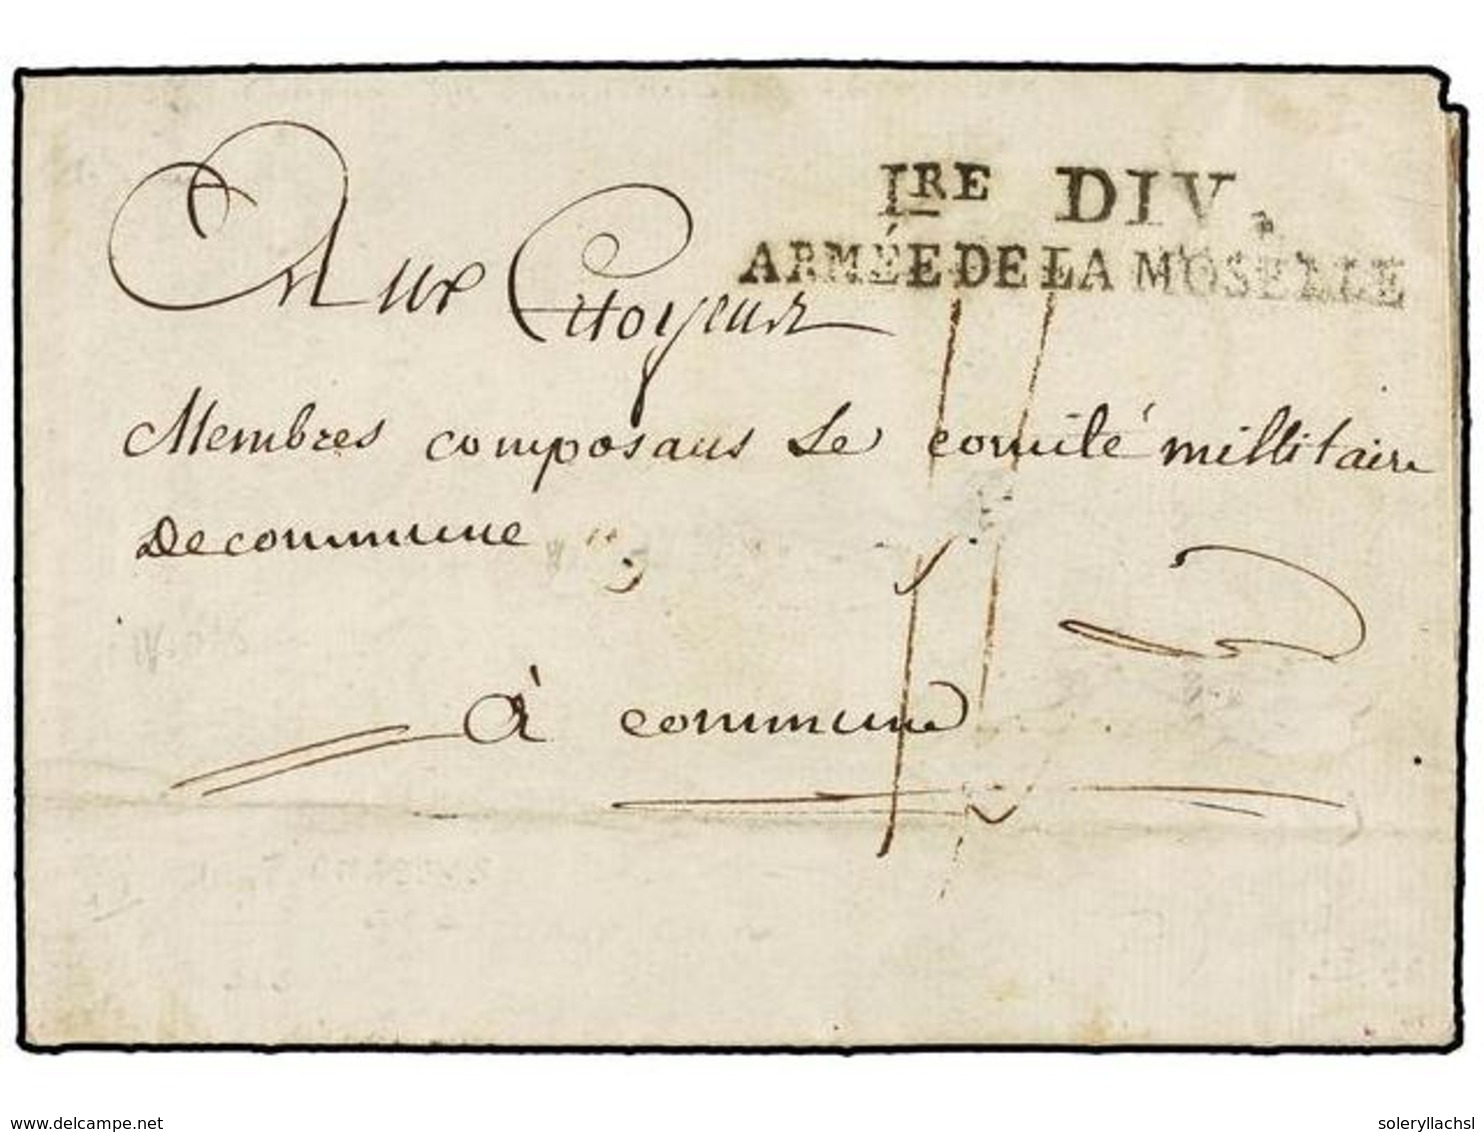 Iʳᴱ DIV.
ARMÉE DE LA MOSELLE
Aux Citoyens
Membres composans Le comité millitaire
De commune
à commune
www.delcampe.net
soleryllachsl